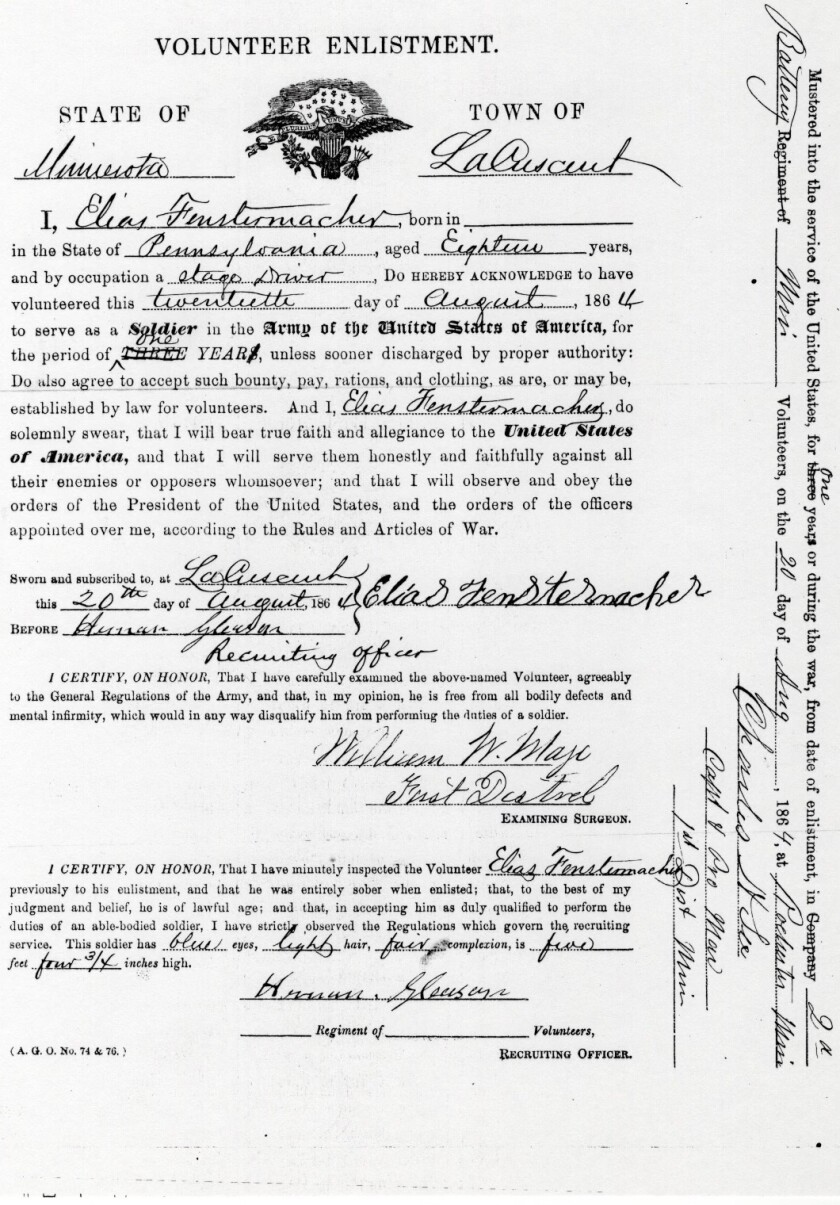 VOLUNTEER ENLISTMENT.
STATE OF TOWN OF
Minnesota LaCrescent
I, Elias Fenstermacher, born in
in the State of Pennsylvania, aged Eighteen years,
and by occupation a stage Driver, DO HEREBY ACKNOWLEDGE to have
volunteered this twentieth day of August, 1864
to serve as a Soldier in the Army of the United States of America, for
one
the period of THREE YEARS, unless sooner discharged by proper authority:
Do also agree to accept such bounty, pay, rations, and clothing, as are, or may be,
established by law for volunteers. And I, Elias Fenstermacher, do
solemnly swear, that I will bear true faith and allegiance to the United States
of America, and that I will serve them honestly and faithfully against all
their enemies or opposers whomsoever; and that I will observe and obey the
orders of the President of the United States, and the orders of the officers
appointed over me, according to the Rules and Articles of War.
Sworn and subscribed to, at LaCrescent
this 20th day of August, 1864 Elias Fenstermacher
BEFORE Herman Gleason
Recruiting officer
I CERTIFY, ON HONOR, That I have carefully examined the above-named Volunteer, agreeably
to the General Regulations of the Army, and that, in my opinion, he is free from all bodily defects and
mental infirmity, which would in any way disqualify him from performing the duties of a soldier.
William W.
First
EXAMINING SURGEON.
I CERTIFY, ON HONOR, That I have minutely inspected the Volunteer Elias Fenstermacher
previously to his enlistment, and that he was entirely sober when enlisted; that, to the best of my
judgment and belief, he is of lawful age; and that, in accepting him as duly qualified to perform the
duties of an able-bodied soldier, I have strictly observed the Regulations which govern the recruiting
service. This soldier has blue eyes, light hair, fair complexion, is five
feet four 3/4 inches high.
Herman. Gleason
Regiment of Volunteers,
(A. G. O. No. 74 & 76.) RECRUITING OFFICER.
one
Mustered into the service of the United States, for three years or during the war, from date of enlistment, in Company 2d
Battery Regiment of Min Volunteers, on the 20 day of Aug, 1864, at Rochester Min
Charles
Capt & Pro Mar
1st Dist Min